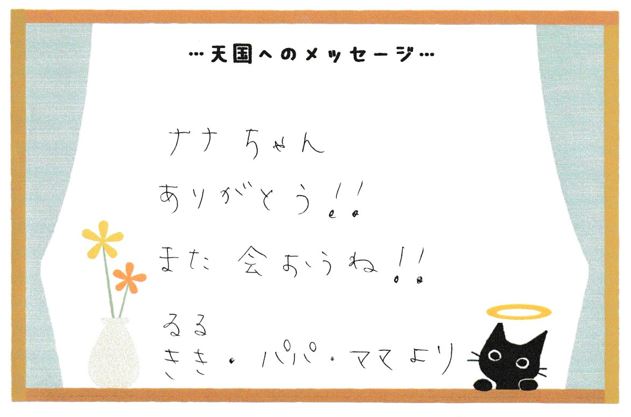 …天国へのメッセージ…
ナナちゃん
ありがとう!!
また会おうね!!
るる
きき・パパ・ママより